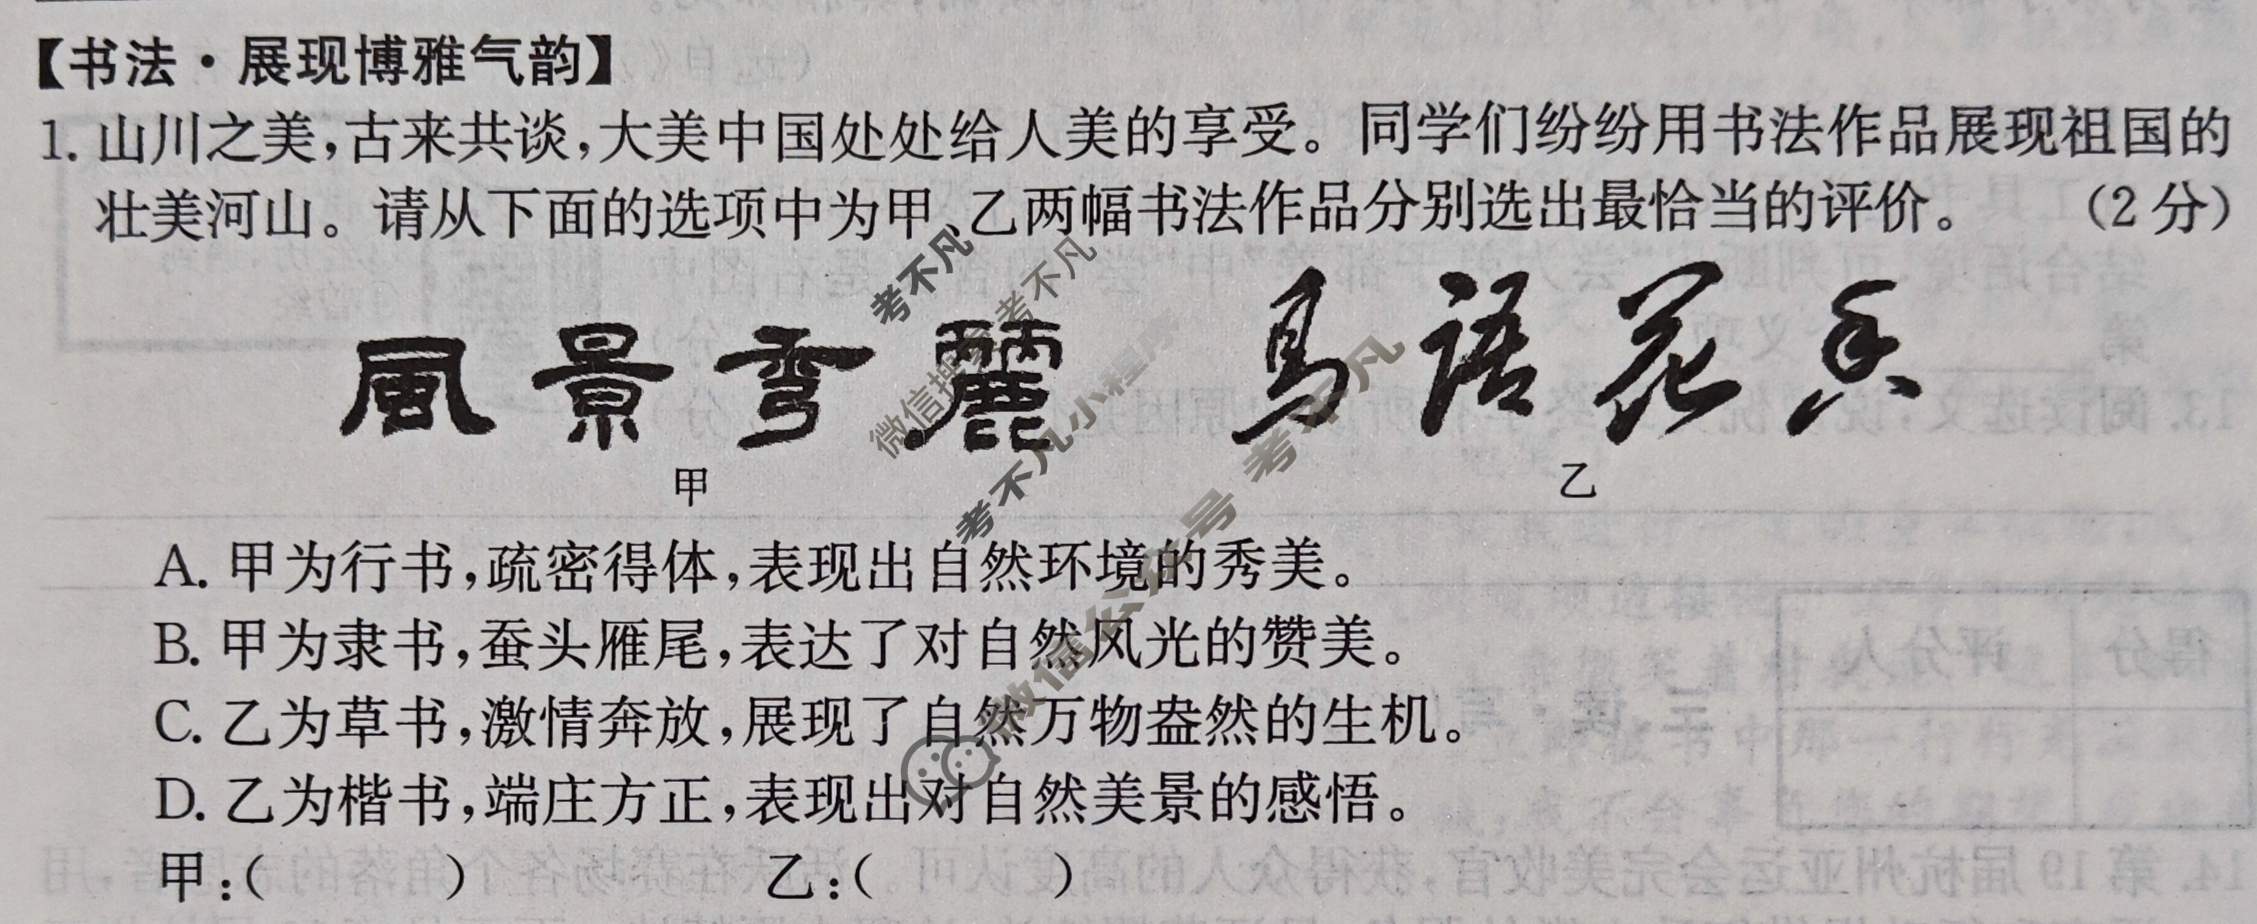 【书法·展现博雅气韵】
1. 山川之美,古来共谈,大美中国处处给人美的享受。同学们纷纷用书法作品展现祖国的
壮美河山。请从下面的选项中为甲、乙两幅书法作品分别选出最恰当的评价。 (2分)
風景秀麗
鸟语花香
甲
乙
A. 甲为行书,疏密得体,表现出自然环境的秀美。
B. 甲为隶书,蚕头雁尾,表达了对自然风光的赞美。
C. 乙为草书,激情奔放,展现了自然万物盎然的生机。
D. 乙为楷书,端庄方正,表现出对自然美景的感悟。
甲:( ) 乙:( )
考不凡
微信搜索 考不凡
考不凡小程序
微信公众号 考不凡